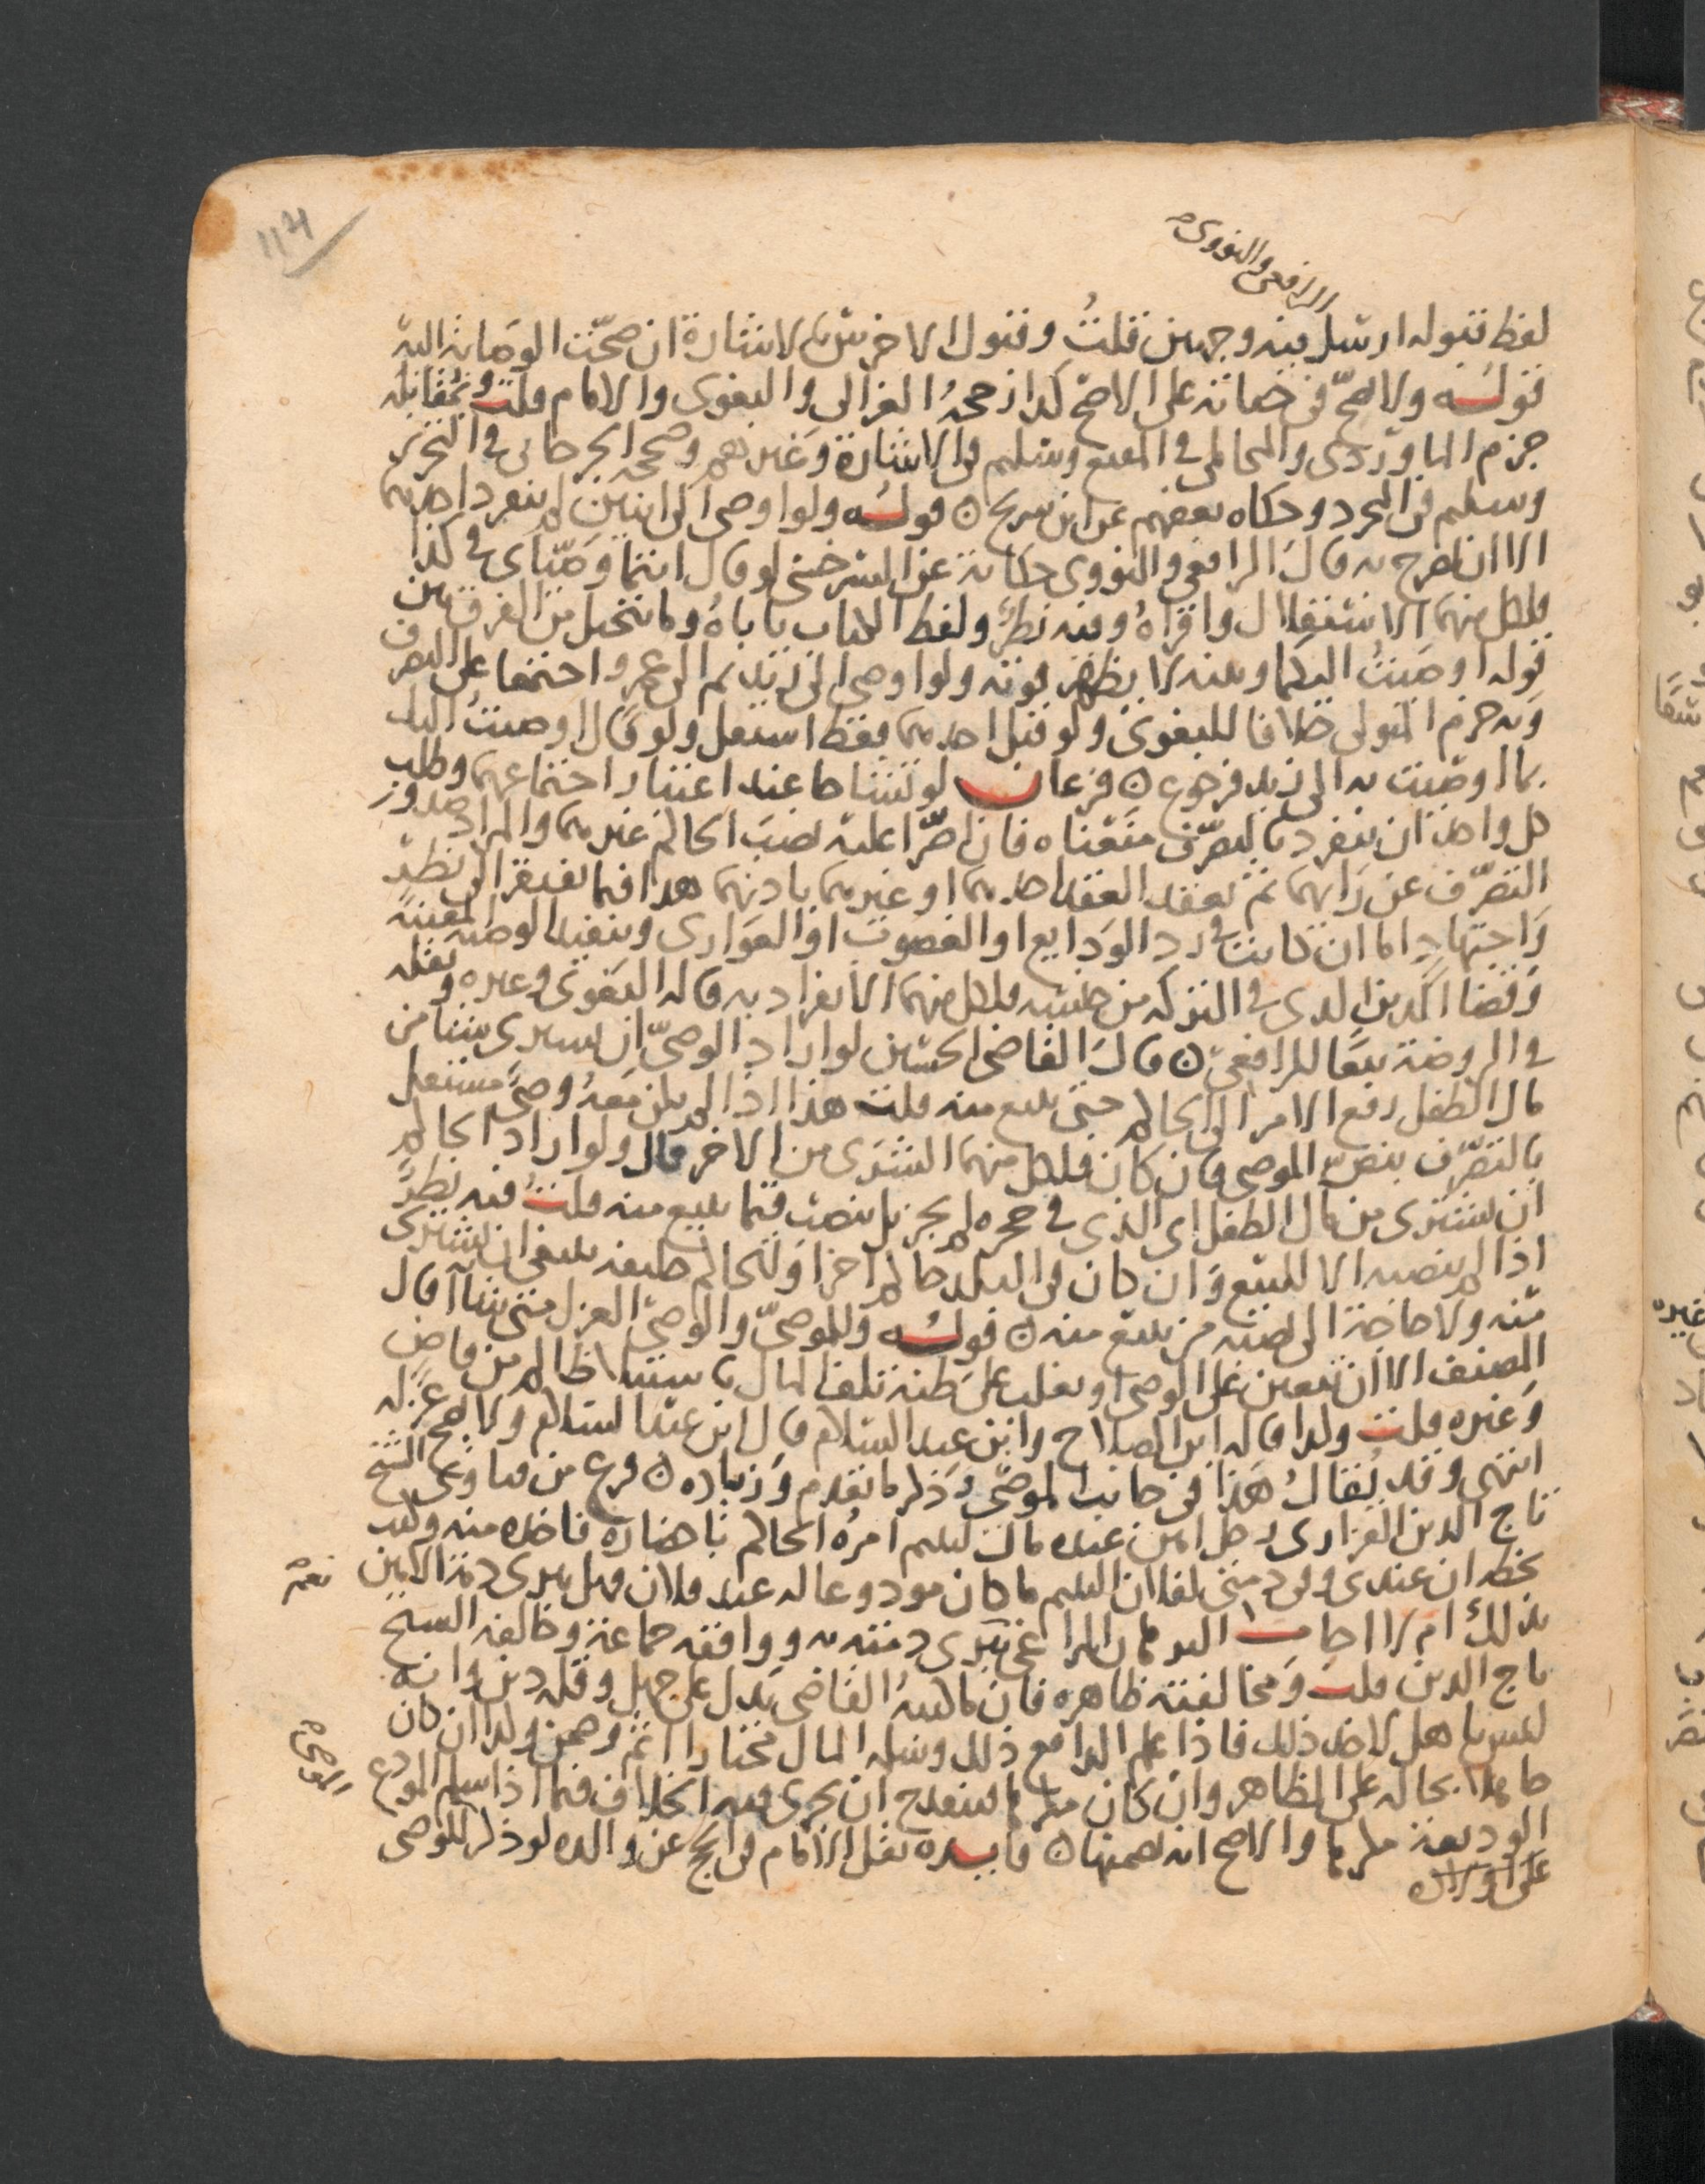 114
الرافعي والنووي
لفظ فتوله ارسل فيه وجهين قلت وقبول الاخرس كالاشارة ان صحت الوصاية اليه
قوله ولا يصح في حياته على الاصح كذا رجحه الغزالي والبغوي والامام قلت وبمقابله
جزم الماوردي والمحاملي في المقنع وسليم في الاشارة وغيرهم وصححه الجرجاني في التحرير
وسليم في المجرد وحكاه بعضهم عن ابن سريج ۞ قوله ولو اوصى الى اثنين لم ينفرد احدهما
الا ان صرح به قال الرافعي والنووي حكاية عن السرخسي لو قال انتما وصياي في كذا
فلكل منهما الاستقلال واقراه وفيه نظر ولفظ الكتاب ياباه وما يتخيل من الفرق بين
قوله اوصيت اليكما وبينه لا يظهر قوته ولو اوصى الى زيد ثم الى عمرو اجتمعا على التصرف
وبه جزم المتولي خلافا للبغوي ولو قبل احدهما فقط استقل ولو قال اوصيت اليك
بما اوصيت به الى زيد فرجوع ۞ فرعان لو تشاحا عند اعتبار اجتماعهما وطلب
كل واحد ان ينفرد بالتصرف منعناه فان اصرا عليه نصب الحاكم غيرهما والمراد صدور
التصرف عن رايهما ثم يعقد العقد احدهما او غيرهما باذنهما هذا فيما يفتقر الى نظر
واجتهاد اما ان كانت في رد الودايع او الغصوب او العواري وتنفيذ الوصية المعينة
وقضا الدين الذي في التركة من جنسه فلكل منهما الانفراد به قاله البغوي وغيره ونقله
في الروضة تبعا للرافعي ۞ قال القاضي الحسين لو اراد الوصي ان يشتري شيئا من
مال الطفل رفع الامر الى الحاكم حتى يبيع منه قلت هذا اذا لم يكن معه وصي مستقل
بالتصرف بنص الموصي فان كان فلكل منهما الشرى من الاخر قال ولو اراد الحاكم
ان يشتري من مال الطفل اي الذي في حجره لم يجز بل ينصب قيما يبيع منه قلت فيه نظر
اذا لم ينصبه الا للبيع وان كان في البلد حاكم اخر او للحاكم خليفة ينبغي ان يشتري
منه ولا حاجة الى نصبه من يبيع منه ۞ قوله وللموصي والوصي العزل متى شاآ قال
المصنف الا ان يتعين على الوصي او يغلب على ظنه تلف المال باستيلا ظالم من قاض
وغيره قلت وكذا قاله ابن الصلاح وابن عبد السلام قال ابن عبد السلام ولا يصح عزله
انتهى وقد يقال هذا في جانب الموصي وذكر ما تقدم وزيادة ۞ فرع من فتاوى الشيخ
تاج الدين الفزاري رجل امين عنده مال ليتيم امره الحاكم باحضاره فاخذه منه وكتب
بخطه ان عندي وفي ذمتي لفلان اليتيم ما كان مودوعا له عند فلان فهل يبرى ذمة الامين
نعم
بذلك ام لا اجاب البرهان المراغي تبرى ذمته به ووافقه جماعة وخالفه الشيخ
تاج الدين قلت ومخالفته ظاهرة فان ما كتبه القاضي يدل على جهل وقلة دين وانه
ليس باهل لاخذ ذلك فاذا علم الدافع ذلك وسلم المال مختارا اثم وضمن ولذا ان كان
الوصي
جاهلا بحاله على الظاهر وان كان مكرها فينقدح ان يجري فيه الخلاف فيما اذا سلم المودع
الوديعة مكرها والاصح انه يضمنها ۞ فايدة نقل الامام في الحج عن والده لو ذكر للوصي
على اولاده